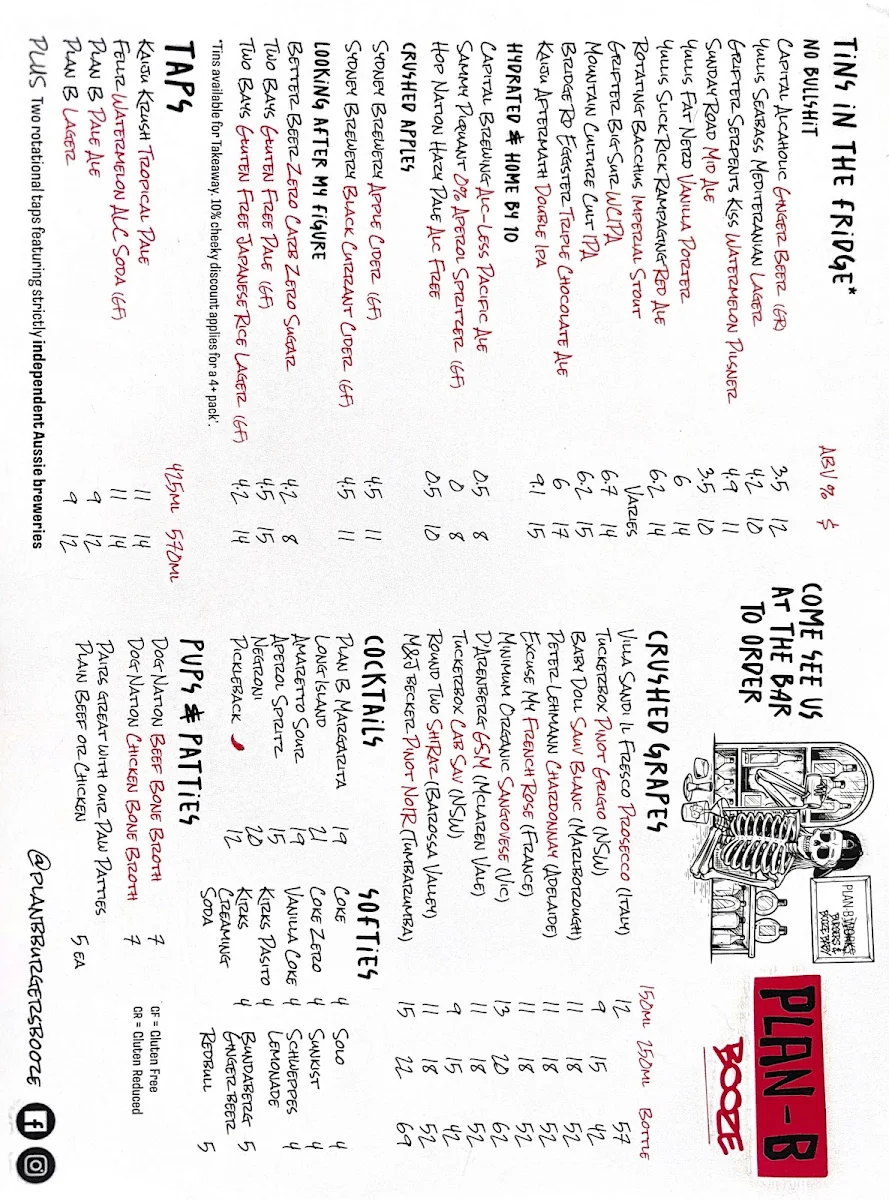 TINS IN THE FRIDGE*
ABV% $
NO BULLSHIT
CAPITAL ALCAHOLIC GINGER BEER (GR) 3.5 12
YULLIS SEABASS MEDITERANIAN LAGER 4.2 10
GRIFTER SERPENTS KISS WATERMELON PILSNER 4.9 11
SUNDAY ROAD MID ALE 3.5 10
YULLIS FAT NERD VANILLA PORTER 6 14
YULLIS SLICK RICK RAMPAGING RED ALE 6.2 14
ROTATING BACCHUS IMPERIAL STOUT VARIES
GRIFTER BIG SUR WCIPA 6.7 14
MOUNTAIN CULTURE CULT IPA 6.2 15
BRIDGE RD EGGSTER TRIPLE CHOCOLATE ALE 6 17
KAIJU AFTERMATH DOUBLE IPA 9.1 15
HYDRATED & HOME BY 10
CAPITAL BREWING ALC-LESS PACIFIC ALE 0.5 8
SAMMY PIQUANT 0% APEROL SPRITZER (GF) 0 8
HOP NATION HAZY PALE ALC FREE 0.5 10
CRUSHED APPLES
SYDNEY BREWERY APPLE CIDER (GF) 4.5 11
SYDNEY BREWERY BLACK CURRANT CIDER (GF) 4.5 11
LOOKING AFTER MY FIGURE
BETTER BEER ZERO CARB ZERO SUGAR 4.2 8
TWO BAYS GLUTEN FREE PALE (GF) 4.5 15
TWO BAYS GLUTEN FREE JAPANESE RICE LAGER (GF) 4.2 14
*Tins available for Takeaway. 10% cheeky discount applies for a 4+ pack'.
TAPS
425ML 570ML
KAIJU KRUSH TROPICAL PALE 11 14
FELLR WATERMELON ALC SODA (GF) 11 14
PLAN B PALE ALE 9 12
PLAN B LAGER 9 12
PLUS Two rotational taps featuring strictly independent Aussie breweries
COME SEE US
AT THE BAR
TO ORDER
PLAN-B
BURGERS &
BOOZE
PLAN-B
BOOZE
CRUSHED GRAPES
150ML 250ML BOTTLE
VILLA SANDI IL FRESCO PROSECCO (ITALY) 12 57
TUCKERBOX PINOT GRIGIO (NSW) 9 15 42
BABY DOLL SAUV BLANC (MARLBOROUGH) 11 18 52
PETER LEHMANN CHARDONNAY (ADELAIDE) 11 18 52
EXCUSE MY FRENCH ROSE (FRANCE) 11 18 52
MINIMUM ORGANIC SANGIOIESE (VIC) 13 20 62
D'ARENBERG GSM (MCLAREN VALE) 11 18 52
TUCKERBOX CAB SAV (NSW) 9 15 42
ROUND TWO SHIRAZ (BAROSSA VALLEY) 11 18 52
M&J BECKER PINOT NOIR (TUMBARUMBA) 15 22 69
COCKTAILS
PLAN B MARGARITA 19
LONG ISLAND 21
AMARETTO SOUR 19
APEROL SPRITZ 15
NEGRONI 20
PICKLEBACK 12
SOFTIES
COKE
COKE ZERO 4
VANILLA COKE 4
KIRKS PASITO 4
KIRKS
CREAMING
SODA 4
SOLO 4
SUNKIST 4
SCHWEPPES
LEMONADE 4
BUNDABERG
GINGER BEER 5
REDBULL 5
PUPS & PATTIES
DOG NATION BEEF BONE BROTH 7
DOG NATION CHICKEN BONE BROTH 7
PAIRS GREAT WITH OUR PAW PATTIES
PLAIN BEEF OR CHICKEN 5 EA
GF = Gluten Free
GR = Gluten Reduced
@PLANBBURGERSBOOZE